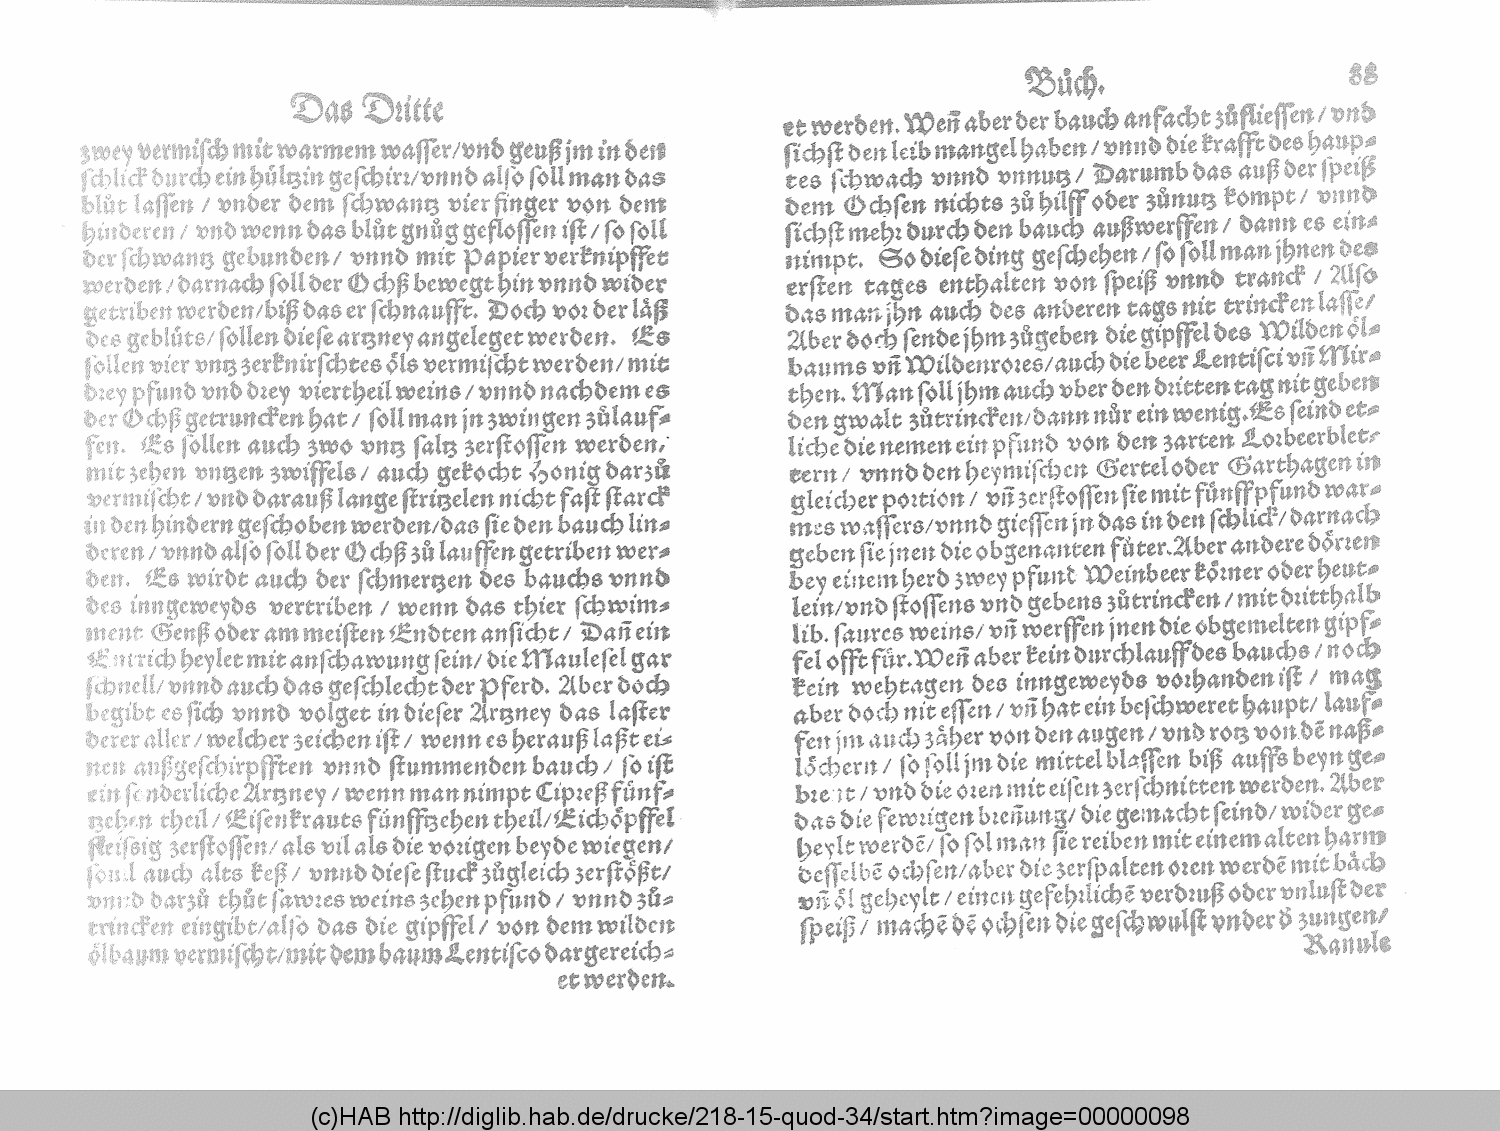 Das Dritte
zwey vermisch mit warmem wasser/vnd geuß jm in den
schlick durch ein hůltzin geschirr/vnnd also soll man das
blůt lassen / vnder dem schwantz vier finger von dem
hinderen / vnd wenn das blůt gnůg geflossen ist / so soll
der schwantz gebunden / vnnd mit Papier verknipffet
werden / darnach soll der Ochß bewegt hin vnnd wider
getriben werden/biß das er schnaufft. Doch vor der låß
des geblůts/ sollen diese artzney angeleget werden. Es
sollen vier vntz zerknirschtes öls vermischt werden/ mit
drey pfund vnd drey viertheil weins / vnnd nachdem es
der Ochß getruncken hat / soll man jn zwingen zůlauf⸗
fen. Es sollen auch zwo vntz saltz zerstossen werden/
mit zehen vntzen zwiffels / auch gekocht Honig darzů
vermischt / vnd darauß lange stritzelen nicht fast starck
in den hindern geschoben werden/das sie den bauch lin⸗
deren / vnnd also soll der Ochß zů lauffen getriben wer⸗
den. Es wirdt auch der schmertzen des bauchs vnnd
des inngeweyds vertriben / wenn das thier schwim⸗
ment Genß oder am meisten Endten ansicht / Dañ ein
Entrich heylet mit anschawung sein/ die Maulesel gar
schnell/ vnnd auch das geschlecht der Pferd. Aber doch
begibt es sich vnnd volget in dieser Artzney das laster
derer aller / welcher zeichen ist / wenn es herauß laßt ei⸗
nen außgeschirpfften vnnd stummenden bauch / so ist
ein sonderliche Artzney / wenn man nimpt Cipreß fünf⸗
tzehen theil / Eisenkrauts fünfftzehen theil/ Eichöpffel
fleissig zerstossen/ als vil als die vorigen beyde wiegen/
sond auch alts keß / vnnd diese stuck zůgleich zerstößt/
vnnd darzů thůt sawres weins zehen pfund / vnnd zů⸗
trincken eingibt/also das die gipffel / von dem wilden
ölbaum vermischt/mit dem baum Lentisco dargereich⸗
et werden.
Bůch. 88
et werden. Weñ aber der bauch anfacht zůfliessen / vnd
sichst den leib mangel haben / vnnd die krafft des haup⸗
tes schwach vnnd vnnutz / Darumb das auß der speiß
dem Ochsen nichts zů hilff oder zůnutz kompt / vnnd
sichst mehr durch den bauch außwerffen / dann es ein⸗
nimpt. So diese ding geschehen / so soll man jhnen des
ersten tages enthalten von speiß vnnd tranck / Also
das man jhn auch des anderen tags nit trincken lasse/
Aber doch sende jhm zůgeben die gipffel des Wilden öl⸗
baums vñ Wildenrores/auch die beer Lentisci vñ Mir⸗
then. Man soll jhm auch vber den dritten tag nit geben
den gwalt zůtrincken/dann nůr ein wenig. Es seind et⸗
liche die nemen ein pfund von den zarten Lorbeerblet⸗
tern / vnnd den heymischen Gertel oder Garthagen in
gleicher portion / vñ zerstossen sie mit fünff pfund war⸗
mes wassers/vnnd giessen jn das in den schlick/ darnach
geben sie jnen die obgenanten fůter. Aber andere dörren
bey einem herd zwey pfunt Weinbeer körner oder heut⸗
lein/vnd stossens vnd gebens zůtrincken / mit dritthalb
lib. saures weins/ vñ werffen jnen die obgemelten gipf⸗
fel offt für. Weñ aber kein durchlauff des bauchs / noch
kein wehtagen des inngeweyds vorhanden ist / mag
aber doch nit essen / vñ hat ein beschweret haupt/ lauf⸗
fen jm auch zåher von den augen / vnd rotz von dē naß⸗
löchern / so soll jm die mittel blassen biß auffs beyn ge⸗
brent / vnd die oren mit eisen zerschnitten werden. Aber
das die fewrigen breñung/ die gemacht seind/ wider ge⸗
heylt werdē/ so sol man sie reiben mit einem alten harm
desselbē ochsen/aber die zerspalten oren werdē mit båch
vñ öl geheylt / einen gefehrlichē verdruß oder vnlust der
speiß / machē dē ochsen die geschwulst vnder ď zungen/
Ranule
(c)HAB http://diglib.hab.de/drucke/218-15-quod-34/start.htm?image=00000098